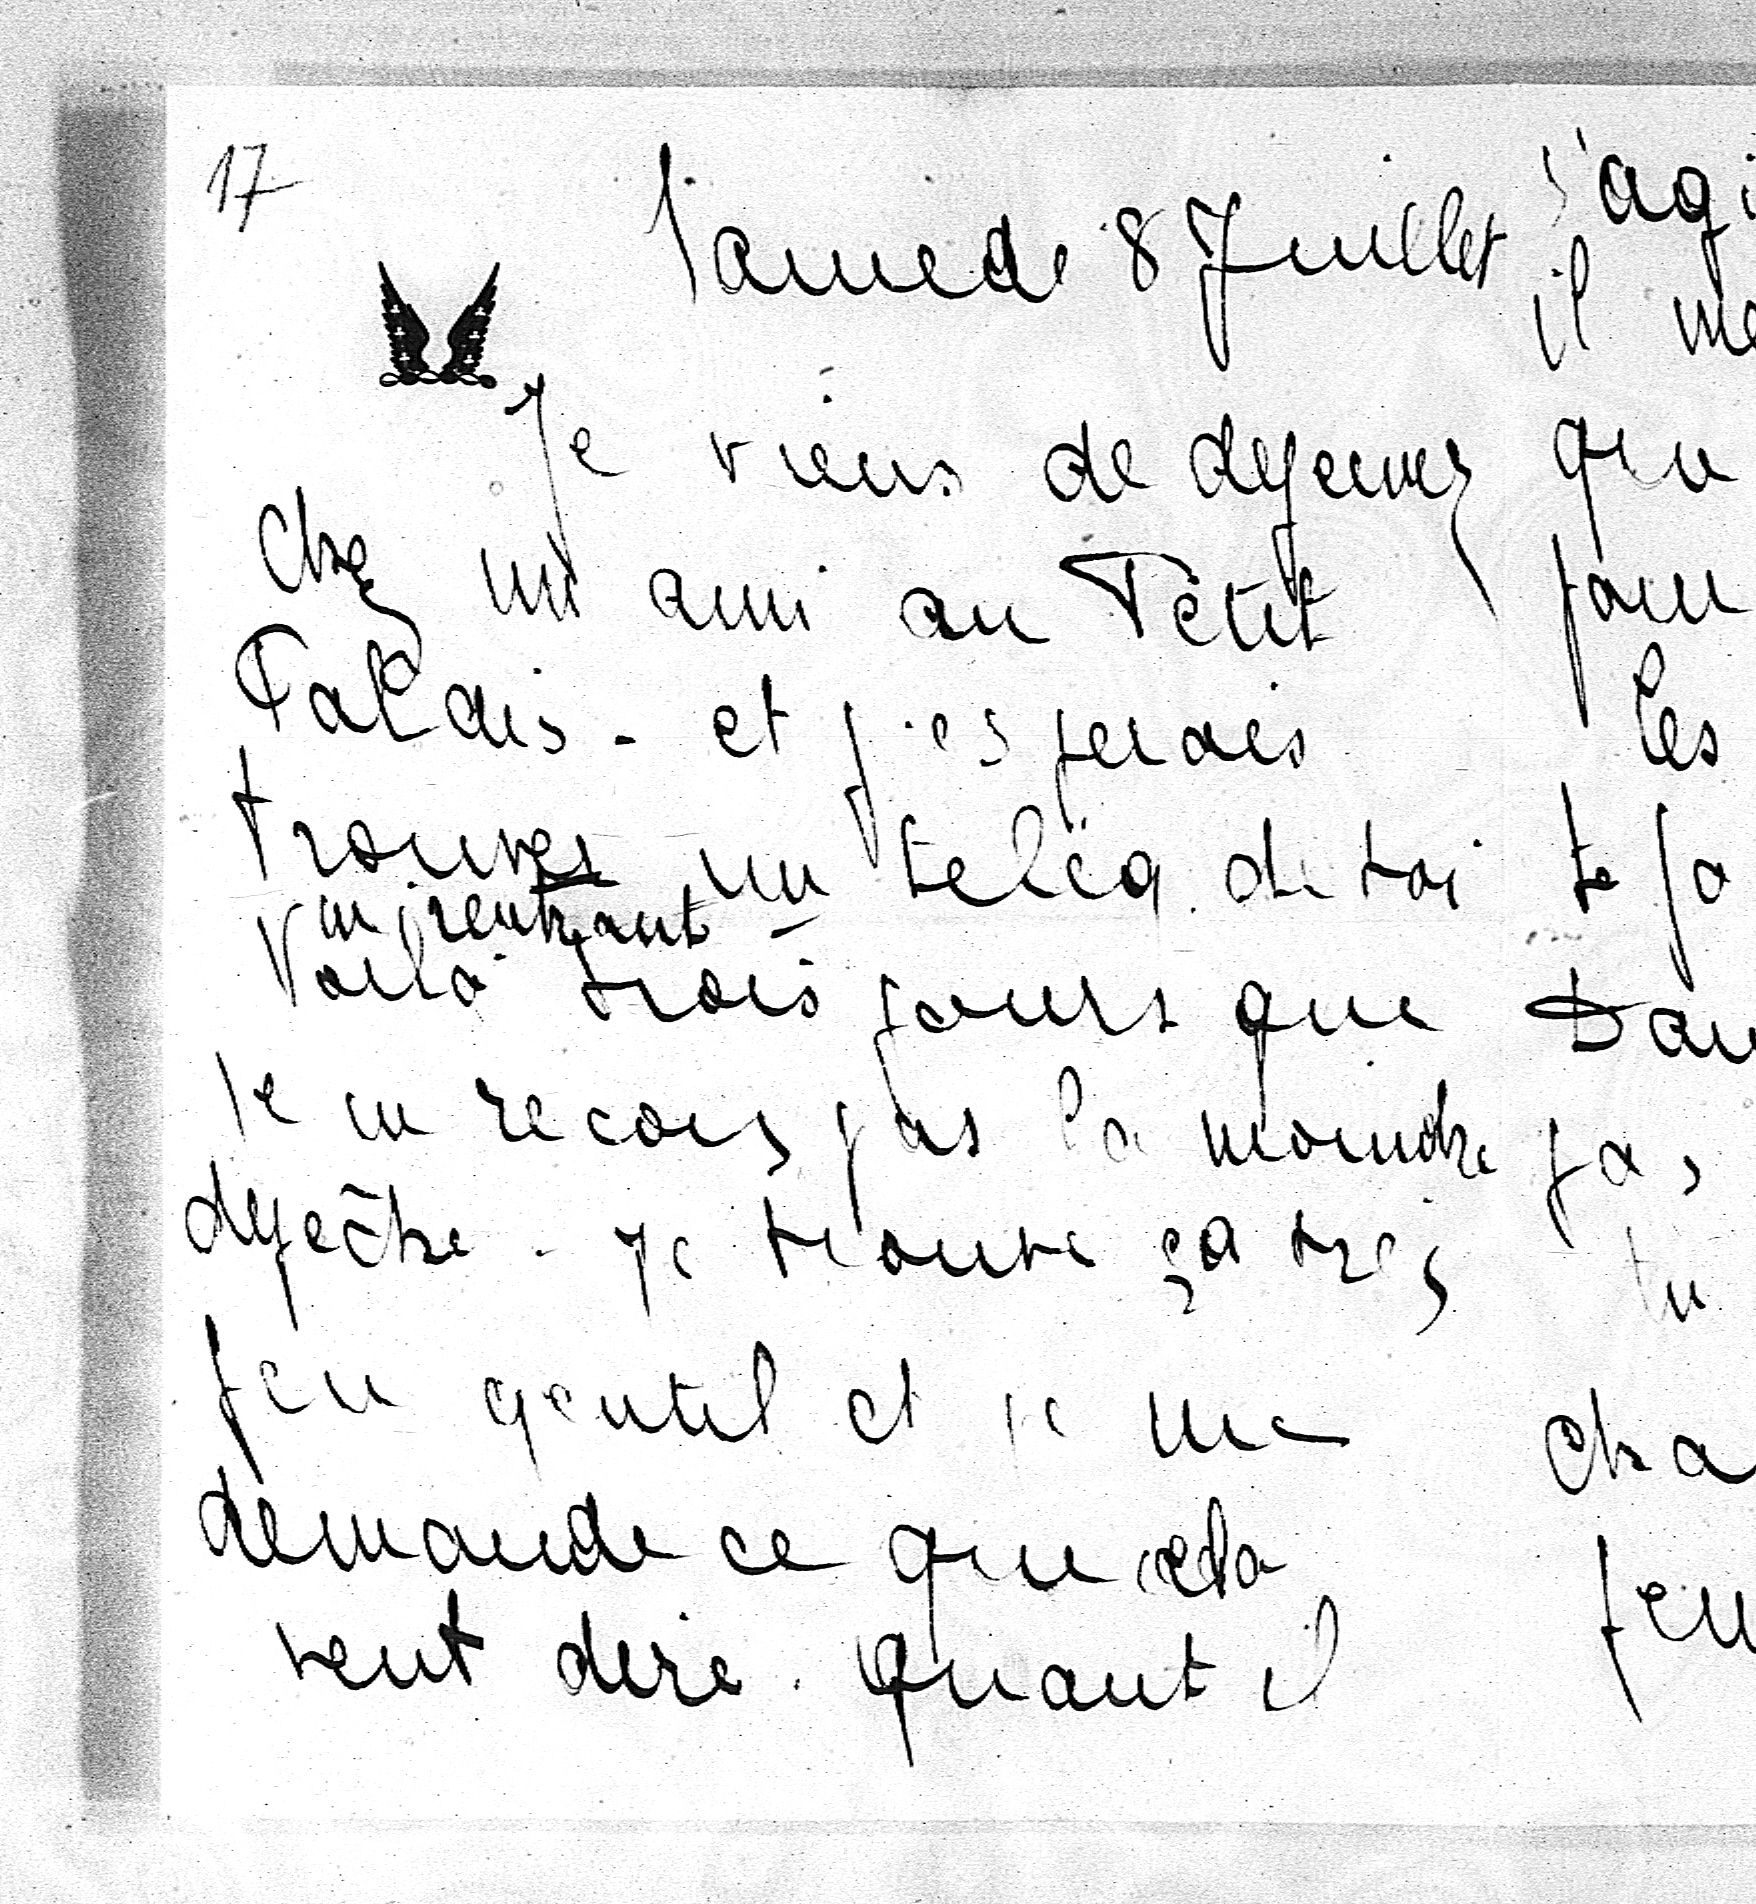 17
Samedi 8 Juillet
Je viens de dejeuner
chez un ami au Petit
Palais - et j'esperais
trouver un téleg. de toi
en rentrant -
Voilà trois jours que
je ne recois pas la moindre
depêche - Je trouve ça très
peu gentil et je me
demande ce que cela
veut dire. Quant il
s'agi
il me
que
pour
les
te
pas
tu
cha